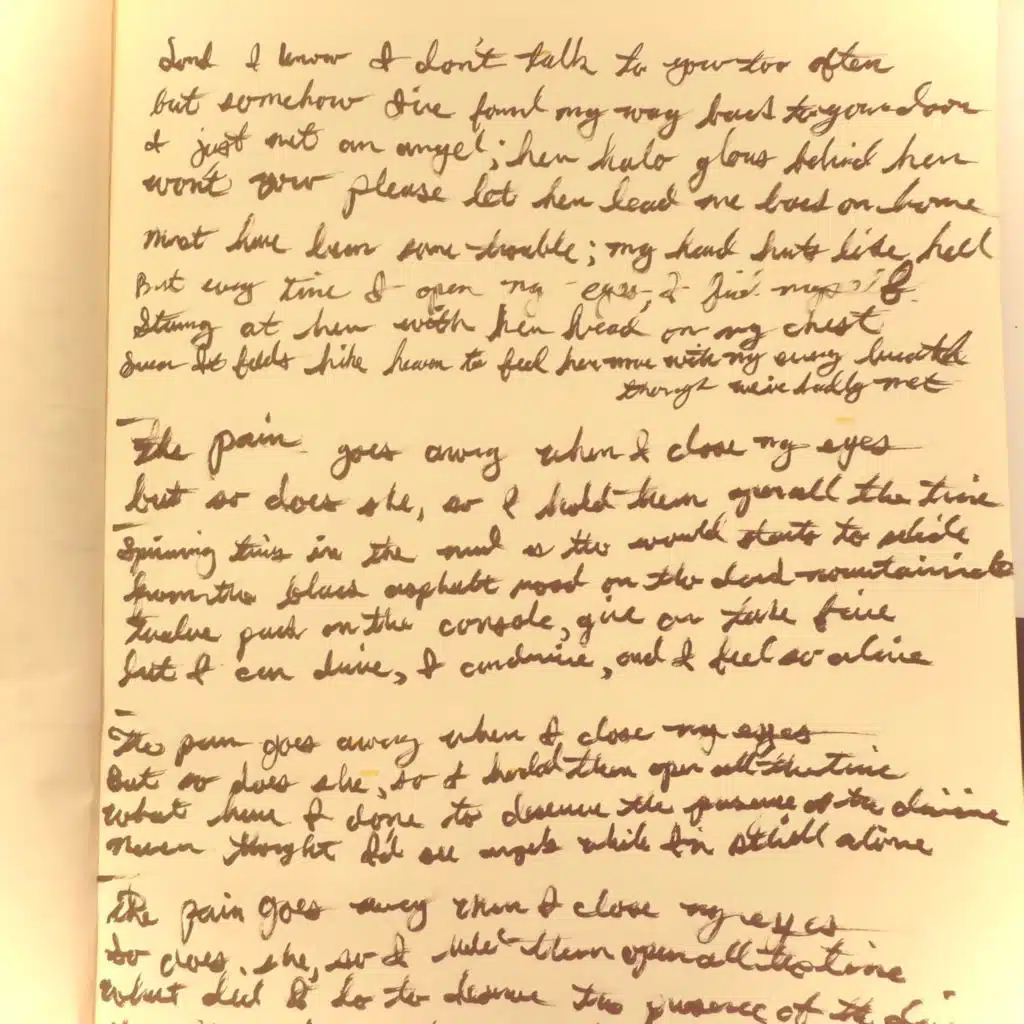 Lord I know I don't talk to you too often
but somehow I've found my way back to your door
I just met an angel; her halo glows behind her
won't you please let her lead me back on home
Must have been some trouble; my head hurts like hell
But every time I open my eyes, I find myself
Staring at her with her head on my chest
Swear It feels like heaven to feel her move with my every breath
though we've hardly met
The pain goes away when I close my eyes
but so does she, so I hold them open all the time
Spinning tires in the mud as the world starts to slide
from the black asphalt road on the dead mountainside
twelve pack on the console, give or take five
but I can drive, I can drive, and I feel so alive
The pain goes away when I close my eyes
But so does she, so I hold them open all the time
what have I done to deserve the presence of the divine
Never thought I'd see angels while I'm still alive
The pain goes away when I close my eyes
So does she, so I them open all the time
What did I do to deserve the presence of the